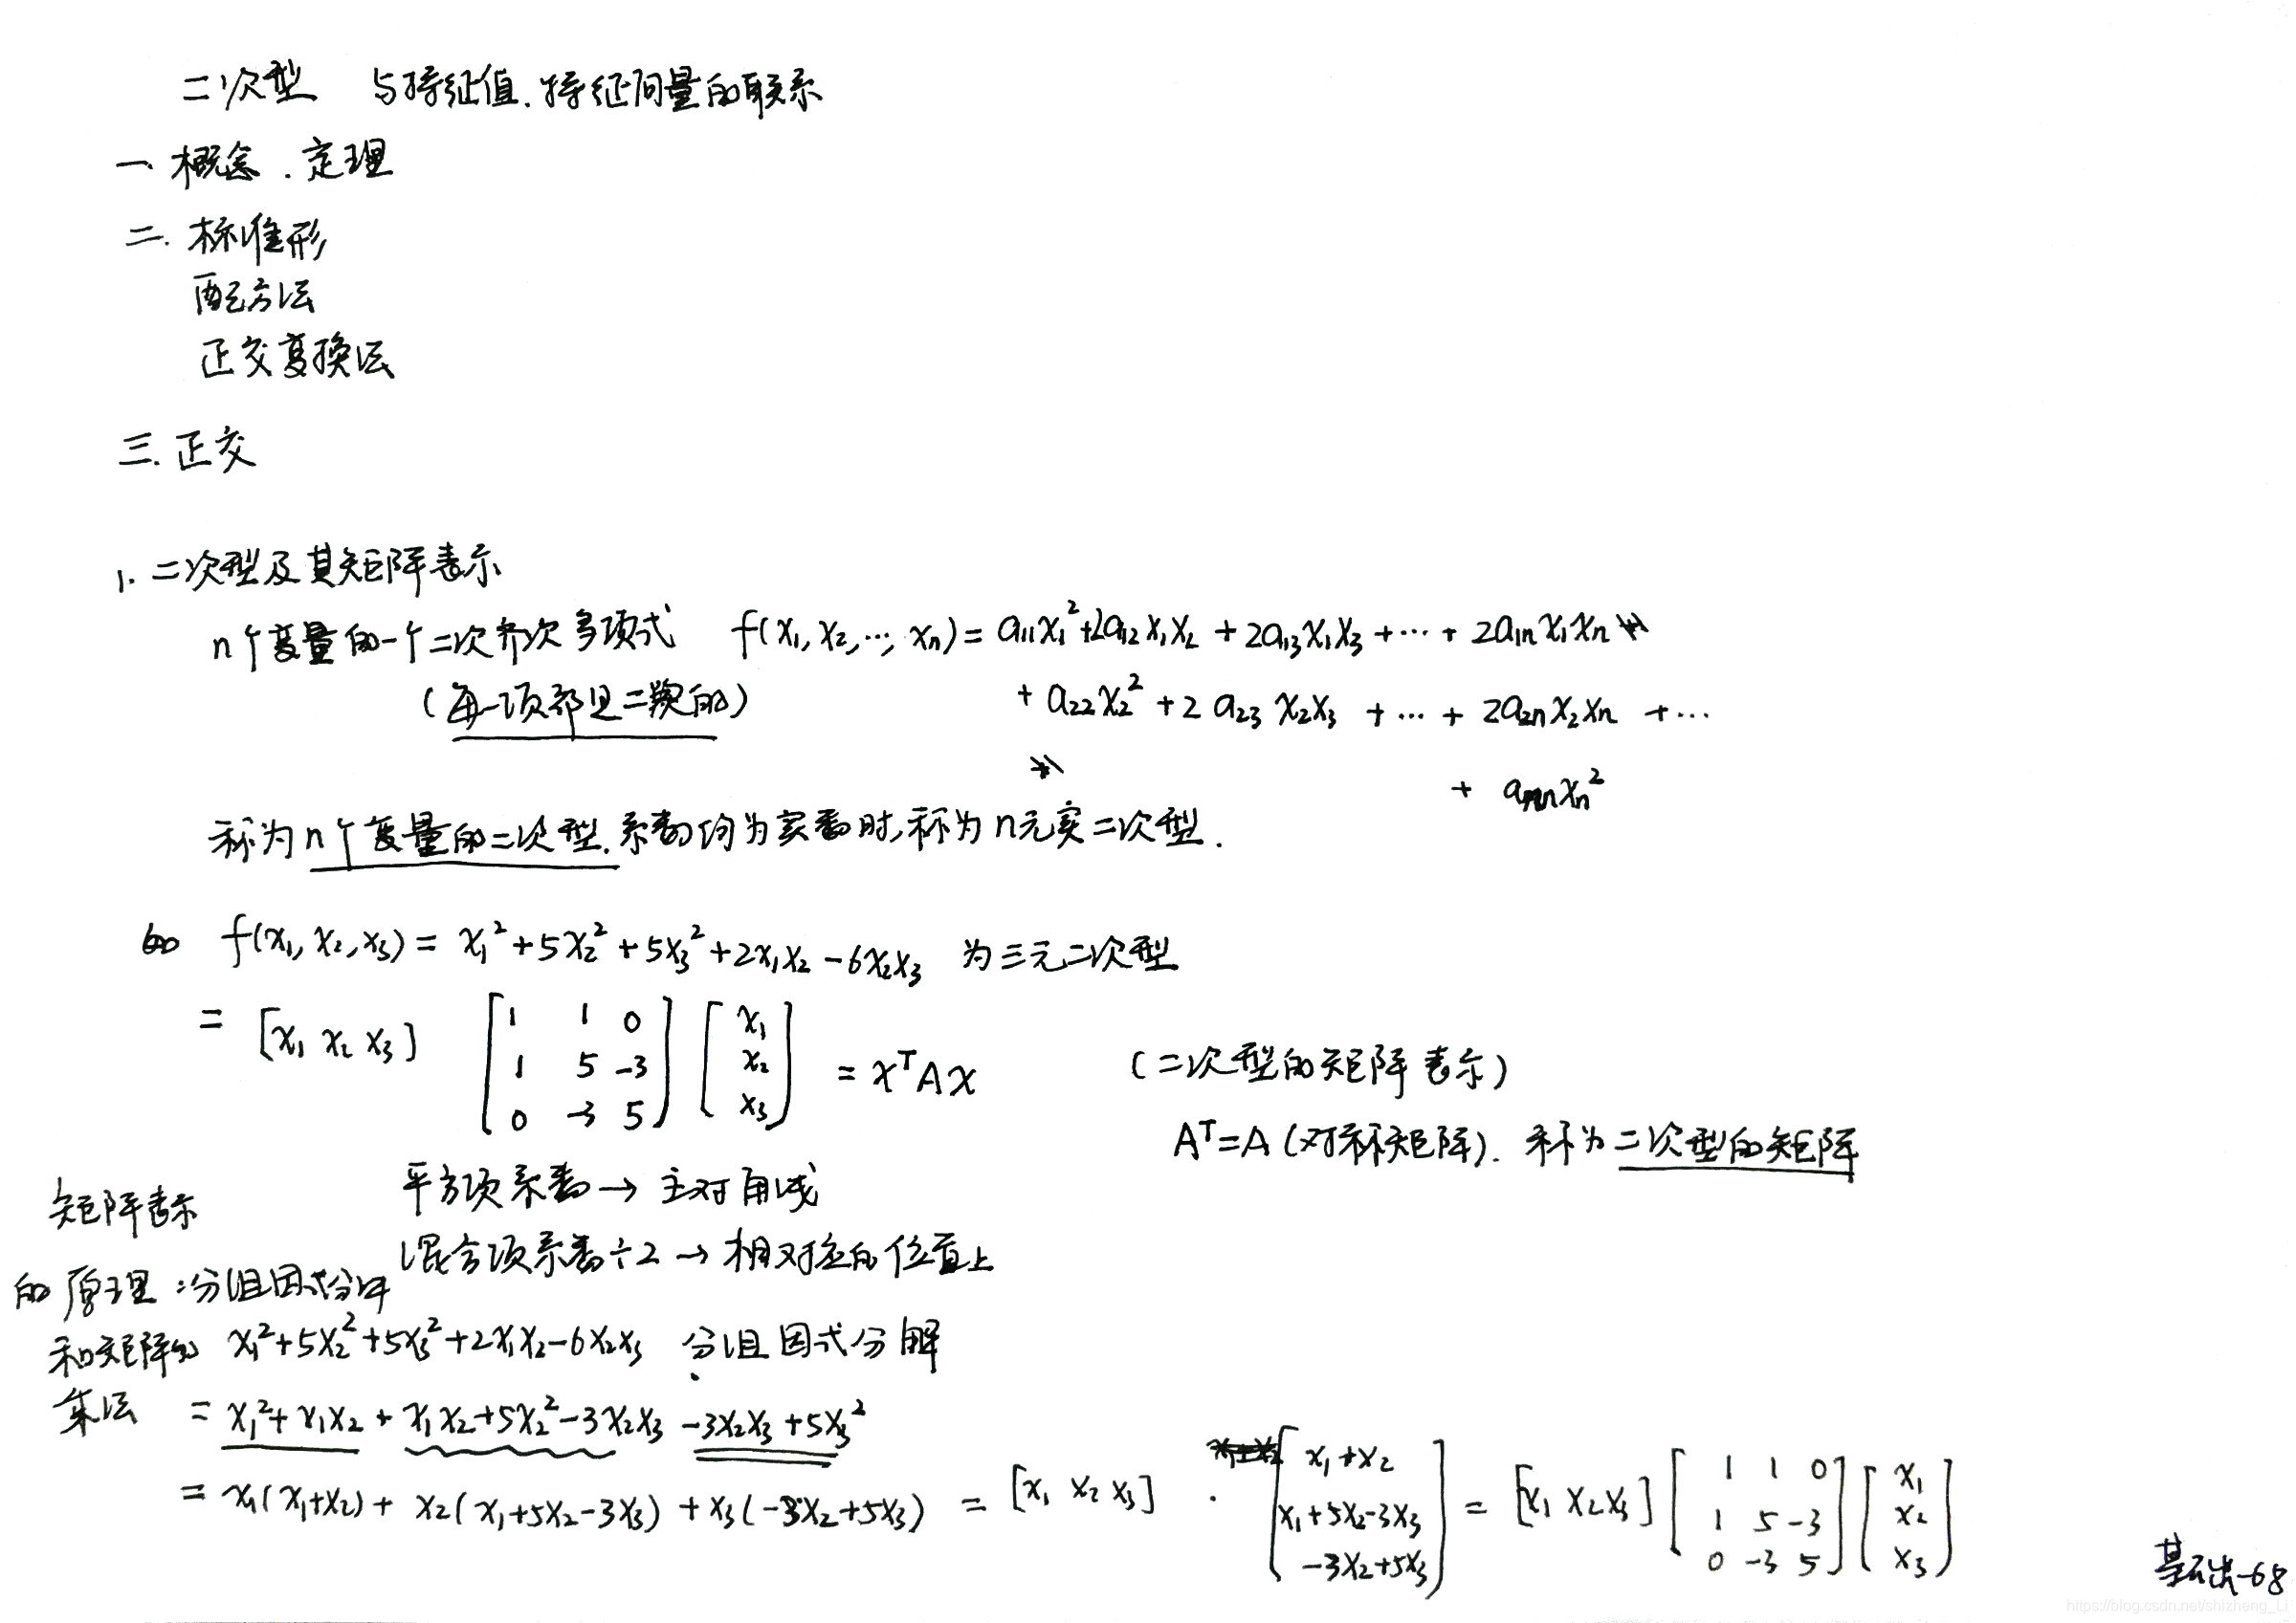 二次型 与特征值.特征向量的联系
一 概念.定理
二.标准形
配方法
正交变换法
三.正交
1.二次型及其矩阵表示
n个变量的一个二次齐次多项式 f(x₁,x₂,…,xₙ)=a₁₁x₁²+2a₁₂x₁x₂+2a₁₃x₁x₃+…+2a₁ₙx₁xₙ
(每一项都是二次的) +a₂₂x₂²+2a₂₃x₂x₃+…+2a₂ₙx₂xₙ+…
+aₙₙxₙ²
称为n个变量的二次型.系数均为实数时,称为n元实二次型.
如 f(x₁,x₂,x₃)=x₁²+5x₂²+5x₃²+2x₁x₂-6x₂x₃ 为三元二次型
= [x₁ x₂ x₃] [1 1 0; 1 5 -3; 0 -3 5] [x₁; x₂; x₃] = xᵀAx (二次型的矩阵表示)
Aᵀ=A(对称矩阵). 称为二次型的矩阵
平方项系数→主对角线
混合项系数÷2→相对应的位置上
矩阵表示
的原理:分组因式分解
和矩阵的
乘法
x₁²+5x₂²+5x₃²+2x₁x₂-6x₂x₃ 分组因式分解
=x₁²+x₁x₂+x₁x₂+5x₂²-3x₂x₃-3x₂x₃+5x₃²
=x₁(x₁+x₂)+x₂(x₁+5x₂-3x₃)+x₃(-3x₂+5x₃) = [x₁ x₂ x₃]·[x₁+x₂; x₁+5x₂-3x₃; -3x₂+5x₃] = [x₁ x₂ x₃] [1 1 0; 1 5 -3; 0 -3 5] [x₁; x₂; x₃]
基础-68
https://blog.csdn.net/shizheng_Li